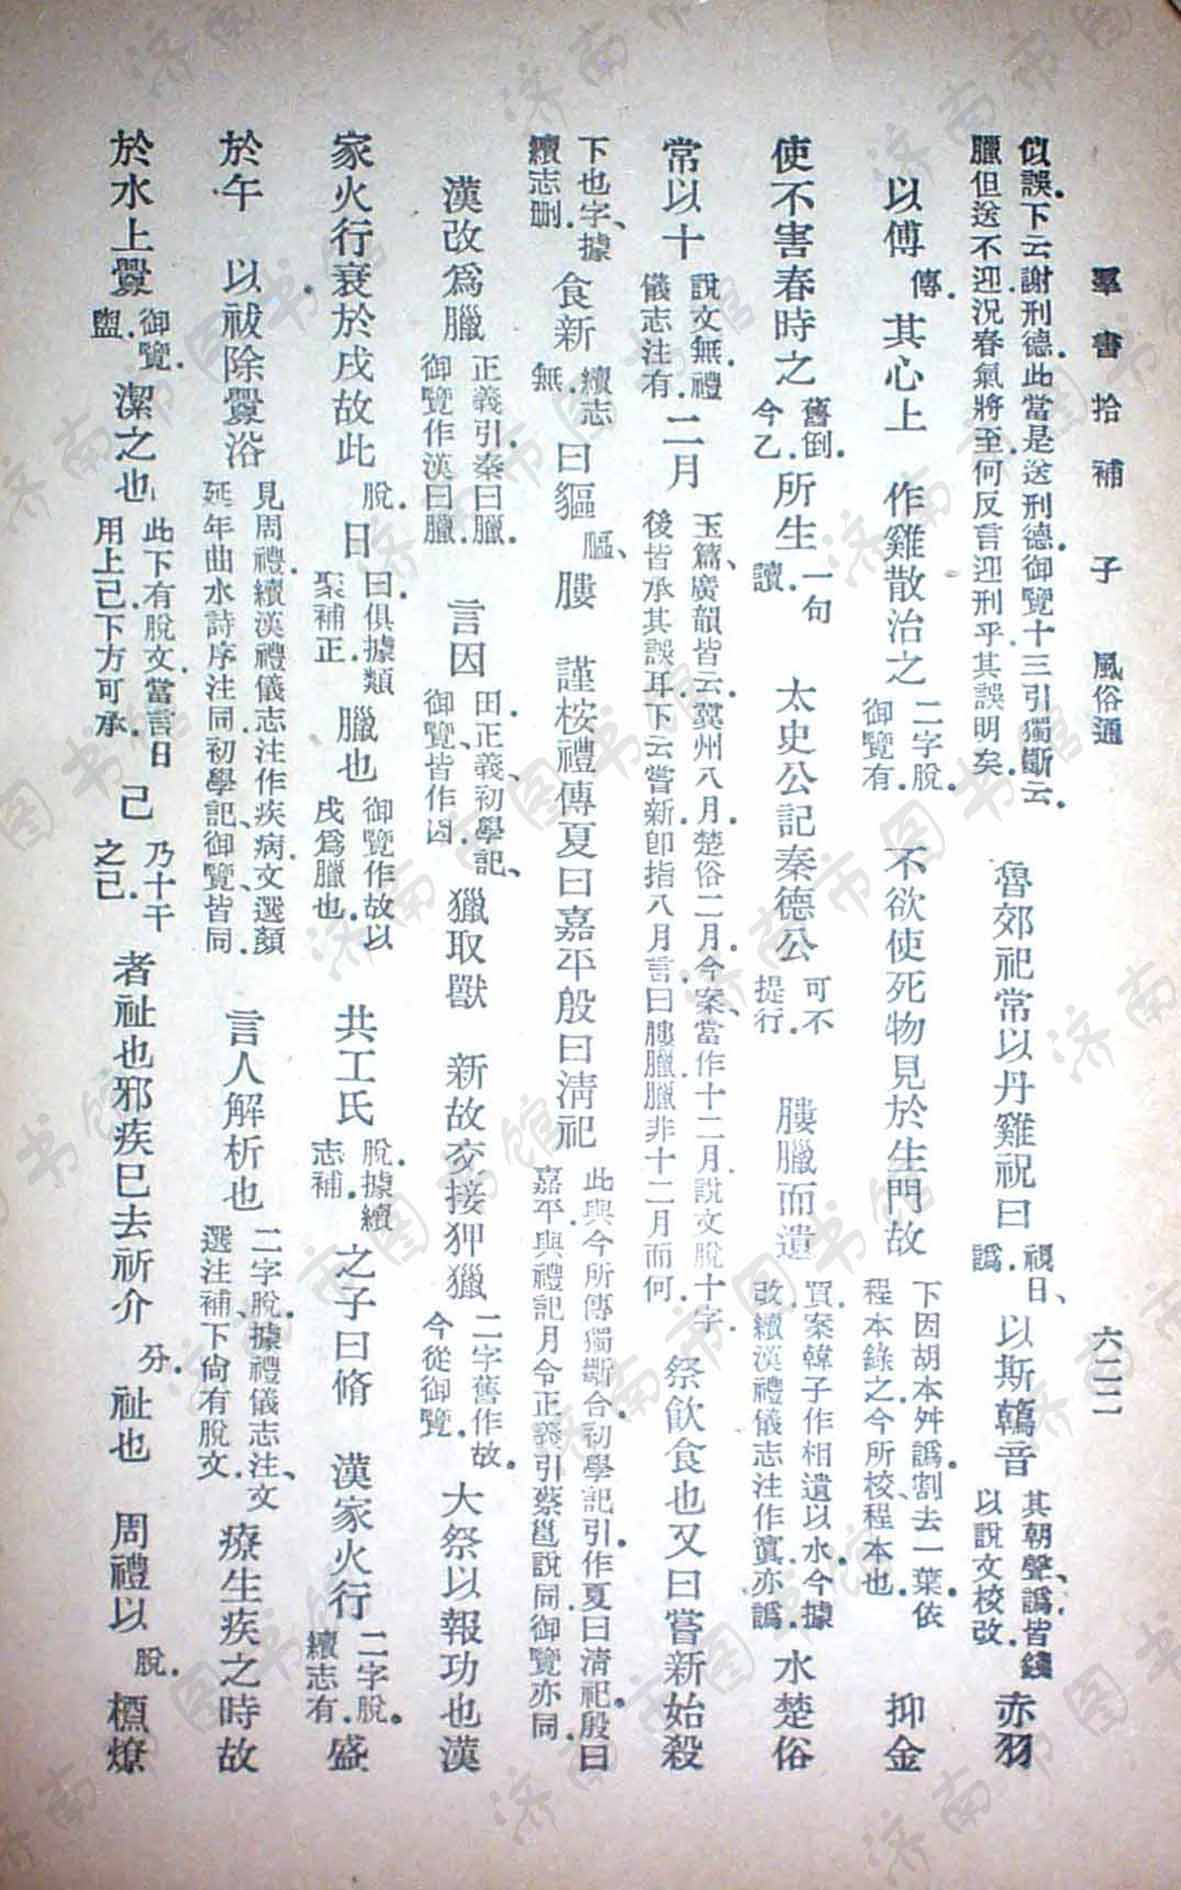 羣書拾補　子　風俗通　六二二
似誤。下云謝刑德。此當是送刑德。御覽十三引獨斷云。臘但送不迎。況春氣將至。何反言迎刑乎。其誤明矣。　魯郊祀常以丹雞祝曰視日、譌。以斯鶾音其朝聲、譌。皆錢以說文校改。赤羽
以傅傳。其心上　作雞散治之二字脫。御覽有。　不欲使死物見於生門故下因胡本舛譌割去一葉。依程本錄之。今所校、程本也。　抑金
使不害春時之舊倒。今乙。所生一句讀。　太史公記秦德公可不提行。　膢臘而遺買。案韓子作相遺以水。今據改。續漢禮儀志注作寘。亦譌。水楚俗
常以十說文無。禮儀志注有。二月玉篇、廣韻皆云。冀州八月。楚俗二月。今案、當作十二月。說文脫十字。後皆承其誤耳。下云嘗新。卽指八月言。曰膢臘。臘非十二月而何。　祭飲食也又曰嘗新始殺
下也字、據續志刪。食新續志無。曰貙䝙、膢　謹桉禮傳夏曰嘉平殷曰淸祀此與今所傳獨斷合。初學記引作夏曰淸祀。殷曰嘉平。與禮記月令正義引蔡邕說同。御覽亦同。
漢改爲臘正義引。秦曰臘。御覽作漢曰臘。　言因田。正義、初學記、御覽皆作因。獵取獸　新故交接狎獵二字舊作故。今從御覽。大祭以報功也漢
家火行衰於戌故此脫。日曰。俱據類聚補正。臘也御覽作故以戌爲臘也。　共工氏脫。據續志補。之子曰脩　漢家火行二字脫。續志有。盛
於午　以祓除釁浴見周禮。續漢禮儀志注作疾病。文選顏延年曲水詩序注同。初學記、御覽皆同。　言人解析也二字脫。據禮儀志注、文選注補。下尙有脫文。療生疾之時故
於水上釁御覽。盥。潔之也此下有脫文。當言日用上己。下方可承。己乃十干之己。者祉也邪疾已去祈介分。祉也　周禮以脫。槱燎